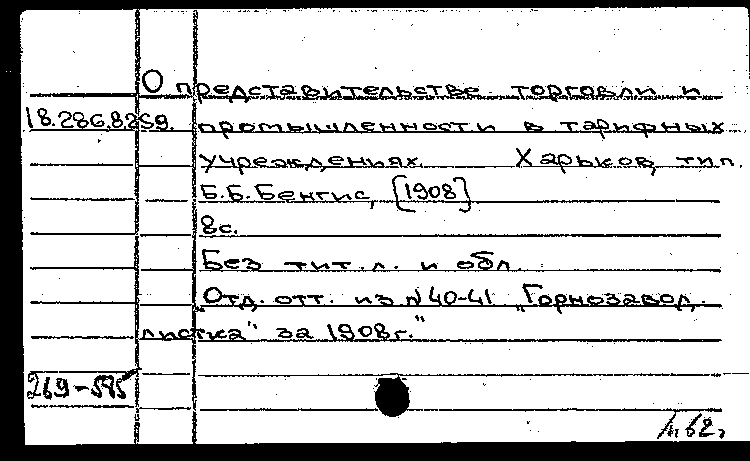 О представительстве торговли и
18.286.8259. промышленности в тарифных
учреждениях. Харьков, тип.
Б.Б. Бенгис, [1908].
8с.
Без тит. л. и обл.
"Отд. отт. из N 40-41 "Горнозавод.
листка" за 1908г."
269-595